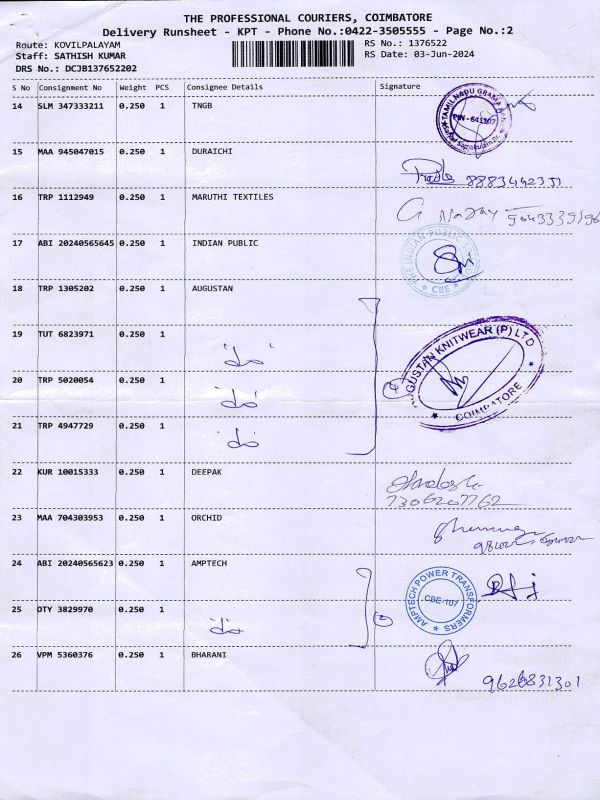 THE PROFESSIONAL COURIERS, COIMBATORE
Delivery Runsheet - KPT - Phone No.:0422-3505555 - Page No.:2
Route: KOVILPALAYAM
RS No.: 1376522
Staff: SATHISH KUMAR
RS Date: 03-Jun-2024
DRS No.: DCJB137652202
S No Consignment No Weight PCS Consignee Details Signature
14 SLM 347333211 0.250 1 TNGB
TAMILNADU GRAMA
PIN - 641107
15 MAA 945047015 0.250 1 DURAICHI
8883442351
16 TRP 1112949 0.250 1 MARUTHI TEXTILES
17 ABI 20240565645 0.250 1 INDIAN PUBLIC
THE INDIAN PUBLIC
CBE
18 TRP 1305202 0.250 1 AUGUSTAN
19 TUT 6823971 0.250 1 "do"
AUGUSTAN KNITWEAR (P) LTD
COIMBATORE
20 TRP 5020054 0.250 1 "do"
4
21 TRP 4947729 0.250 1 "do"
22 KUR 10015333 0.250 1 DEEPAK
7306207762
23 MAA 704303953 0.250 1 ORCHID
24 ABI 20240565623 0.250 1 AMPTECH
AMPTECH POWER TRANSFORMERS
CBE-107
25 DTY 3829970 0.250 1 "do"
2
26 VPM 5360376 0.250 1 BHARANI
9626831301